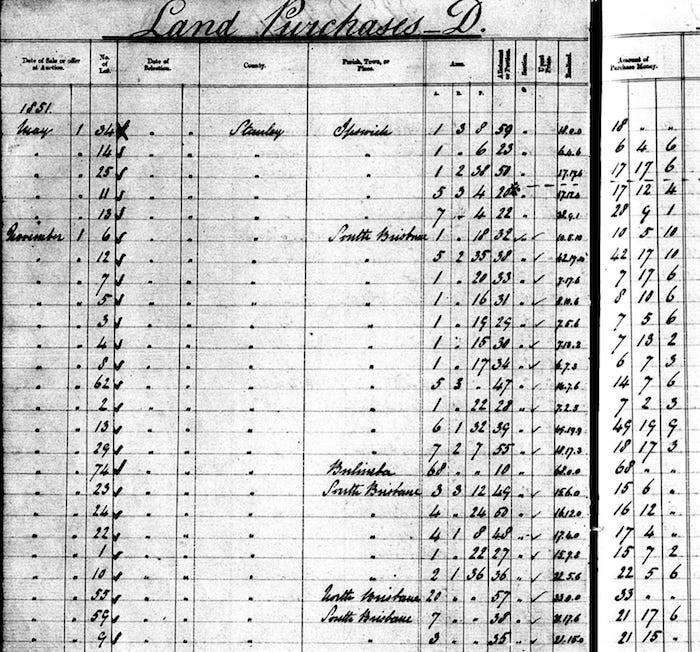 Land Purchases - D.
Date of Sale or offer at Auction. No. of Lot. Date of Selection. County. Parish, Town, or Place. Area. Allotment or Portion. Section. Upset Price. Realised. Amount of Purchase Money.
A. R. P.
1851.
May 1 34 " " Stanley Ipswich 1 3 8 59 " 18.0.0 18 " "
" " 14 " " " " 1 " 6 23 " 6.4.6 6 4 6
" " 25 " " " " 1 2 38 50 " 17.17.6 17 17 6
" " 11 " " " " 5 3 4 20 " 17.12.4 17 12 4
" " 13 " " " " 7 " 4 22 " 28.9.1 28 9 1
November 1 6 " " " South Brisbane 1 " 18 32 " 10.5.10 10 5 10
" " 12 " " " " 5 2 35 38 " 42.17.10 42 17 10
" " 7 " " " " 1 " 20 33 " 7.17.6 7 17 6
" " 5 " " " " 1 " 16 31 " 8.10.6 8 10 6
" " 3 " " " " 1 " 19 29 " 7.5.6 7 5 6
" " 4 " " " " 1 " 15 30 " 7.13.2 7 13 2
" " 8 " " " " 1 " 17 34 " 6.7.3 6 7 3
" " 62 " " " " 5 3 " 47 " 14.7.6 14 7 6
" " 2 " " " " 1 " 22 28 " 7.2.3 7 2 3
" " 13 " " " " 6 1 32 39 " 49.19.9 49 19 9
" " 29 " " " " 7 2 7 55 " 18.17.3 18 17 3
" " 74 " " " Bulimba 68 " " 10 " 68.0.0 68 " "
" " 23 " " " South Brisbane 3 3 12 49 " 15.6.0 15 6 "
" " 24 " " " " 4 " 24 50 " 16.12.0 16 12 "
" " 22 " " " " 4 1 8 48 " 17.4.0 17 4 "
" " 1 " " " " 1 " 22 27 " 15 7 2
" " 10 " " " " 2 1 36 36 " 22.5.6 22 5 6
" " 55 " " " North Brisbane 20 " " 57 " 33.0.0 33 " "
" " 59 " " " South Brisbane 7 " " 38 " 21.17.6 21 17 6
" " 9 " " " " 3 " " 35 " 21.15.0 21 15 "